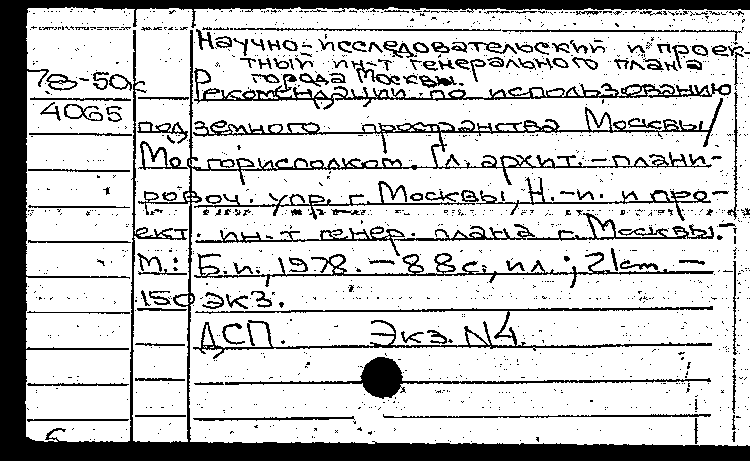 Научно-исследовательский и проек-
тный ин-т генерального плана
города Москвы.
78-50к
4065
Рекомендации по использованию
подземного пространства Москвы/
Мосгорисполком. Гл. архит.-плани-
ровоч. упр. г. Москвы, Н.-и. и про-
ект. ин-т генер. плана г. Москвы.-
М.: Б.и., 1978. - 88 с., ил.; 21 см. -
150 экз.
ДСП. Экз. N4.